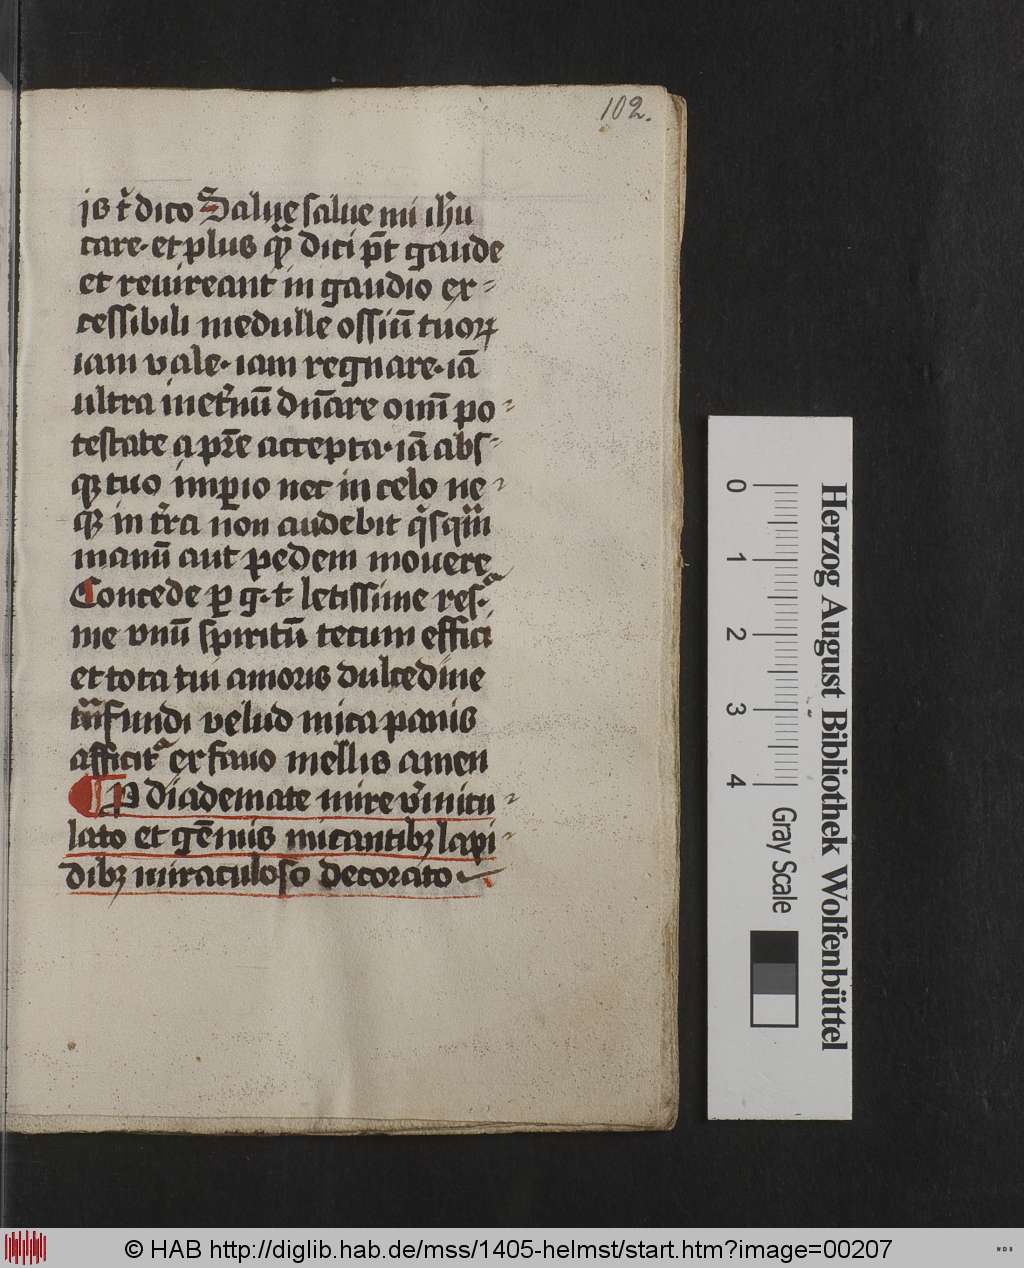 102.
is t̄ dico Salue salue mi ihū
care· et plus qꝫ dici pt̄ gaude
et reuireant in gaudio ex-
cessibili medulle ossiū tuoꝝ
iam vale· iam regnare· iā
ultra inet̄nū dn̄are om̄ po-
testate a pr̄e accepta· iā abs-
qꝫ tuo impio nec in celo ne-
qꝫ in t̄ra non audebit qͥsqͣm
manū aut pedem mouere
Concede ꝑ g· t· letissime res·
me vnū spiritū tecum effici
et tota tui amoris dulcedine
fundi velud mica panis
afficit᷑ ex fauo mellis amen
P diademate mire v̄micu-
lato et gēmis micantibꝫ lapi-
dibꝫ miraculoso decorato
0 1 2 3 4
Gray Scale
Herzog August Bibliothek Wolfenbüttel
© HAB http://diglib.hab.de/mss/1405-helmst/start.htm?image=00207